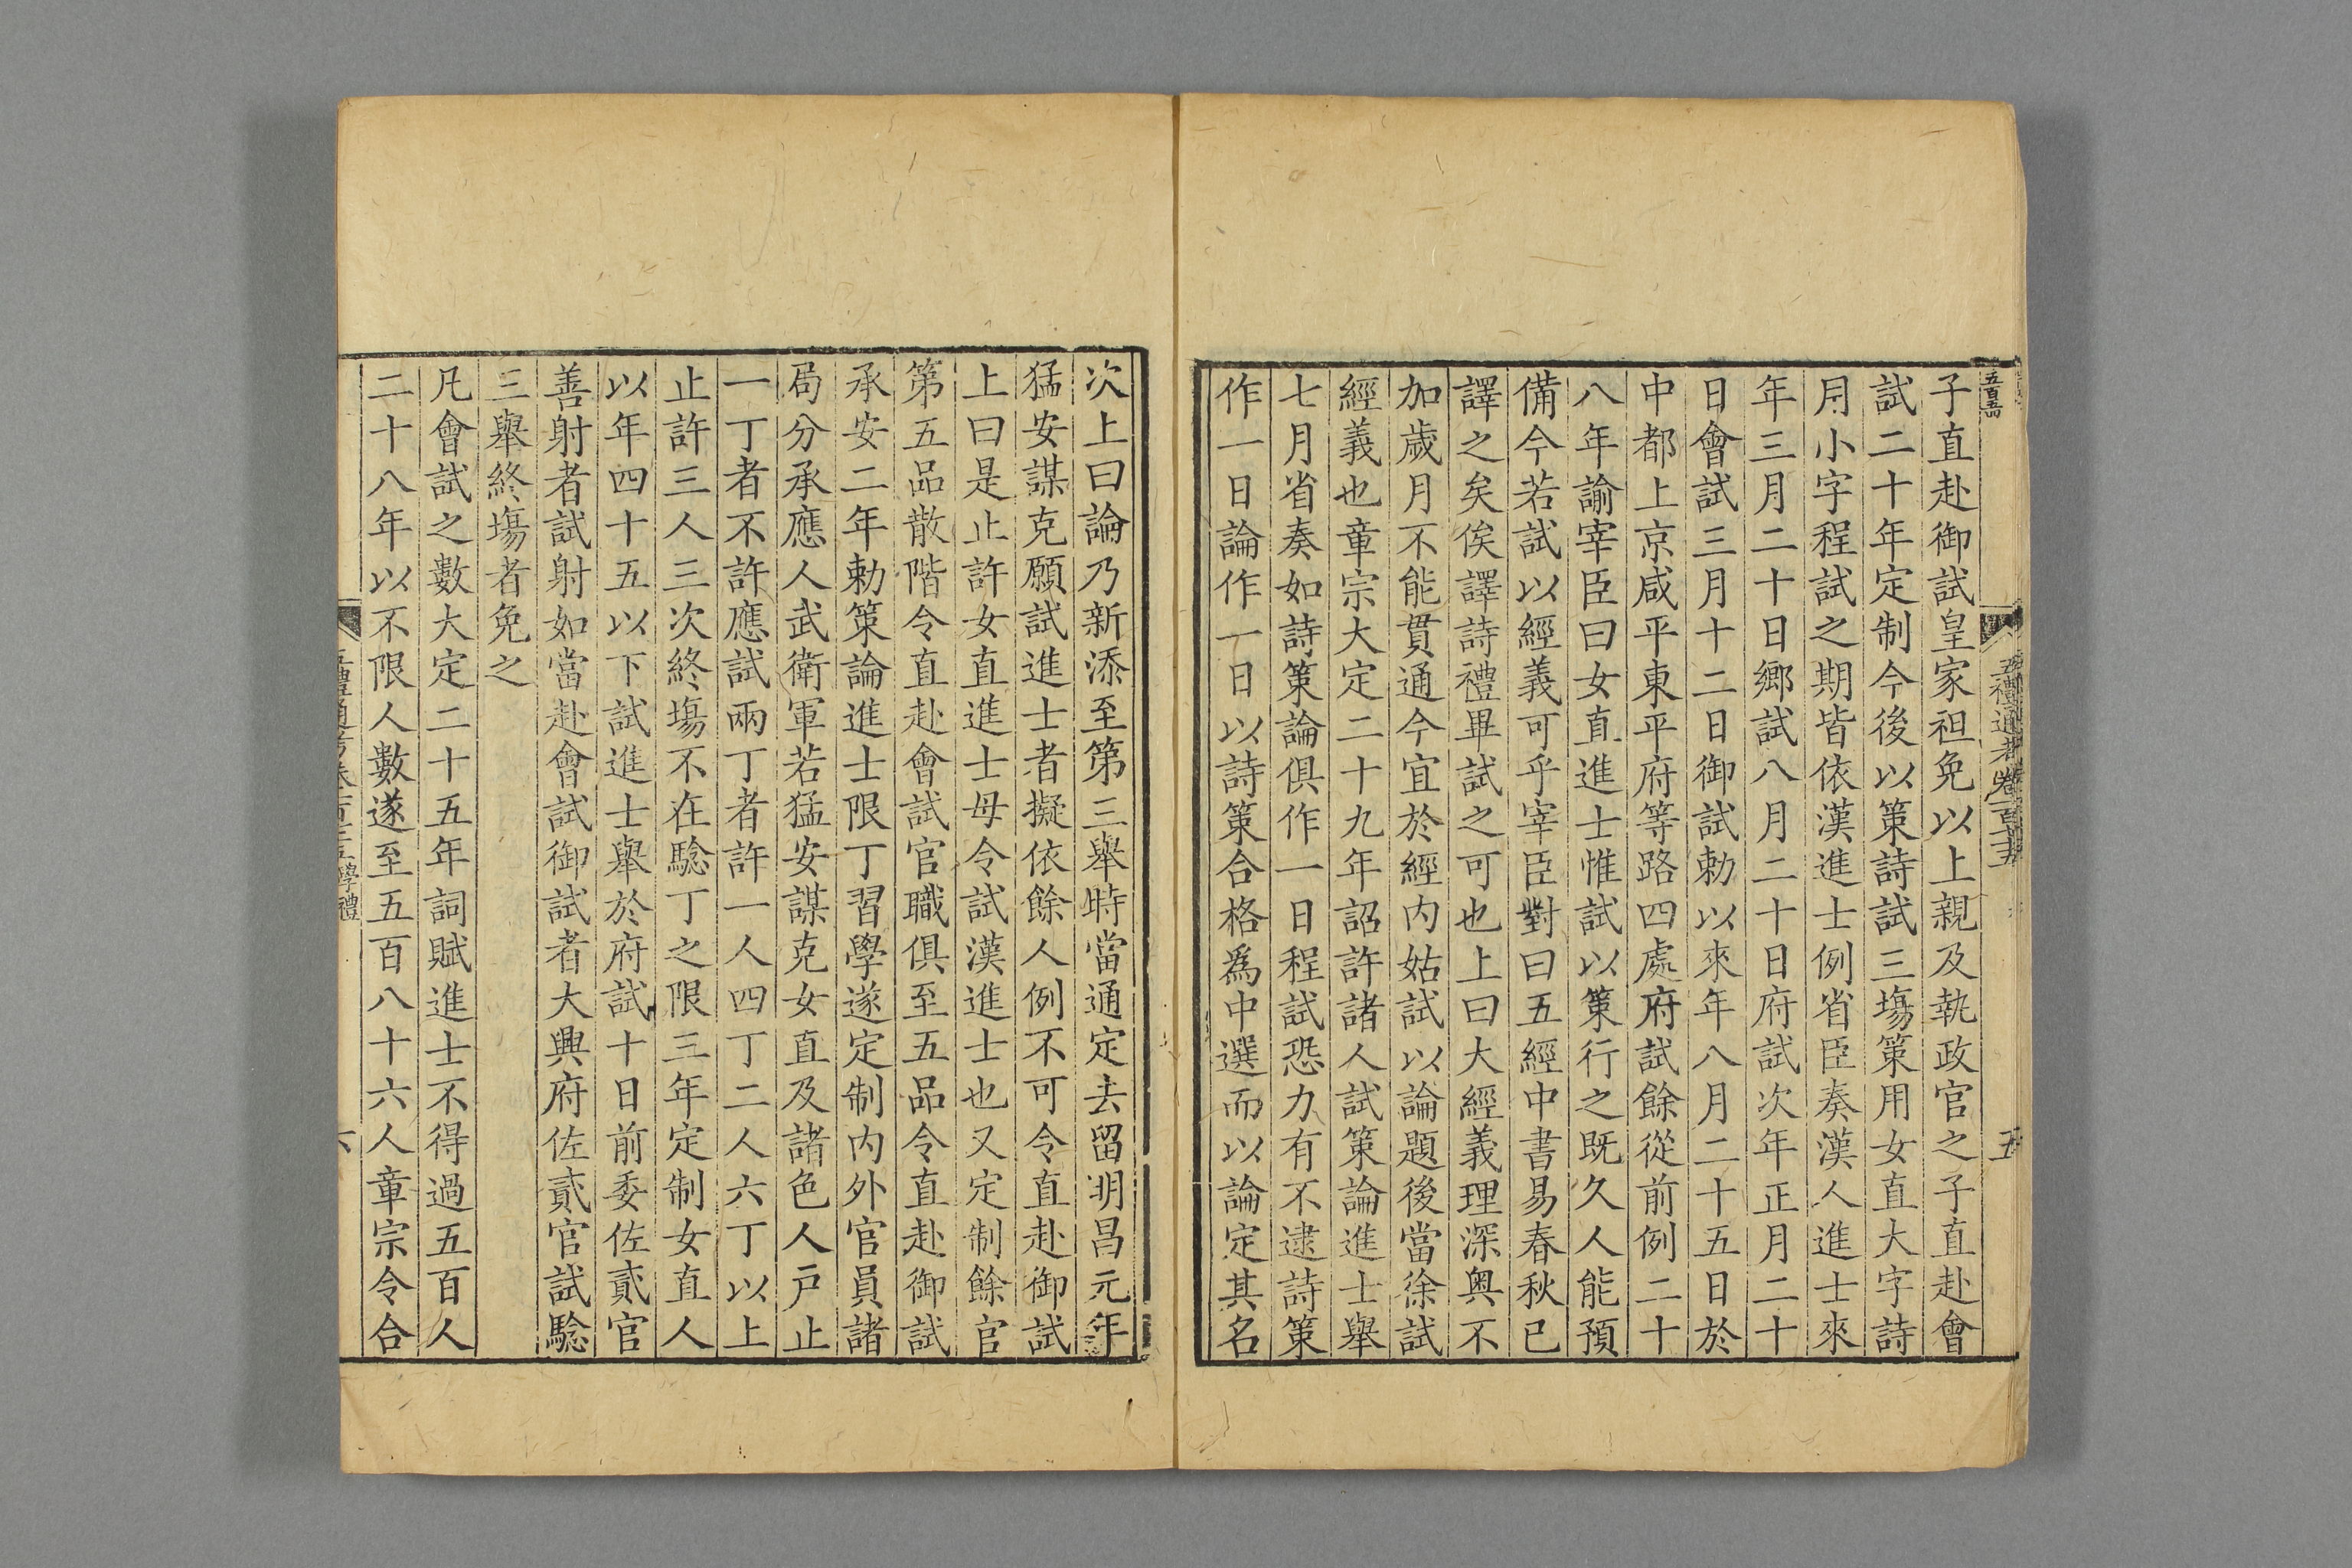 子直赴御試皇家袒免以上親及執政官之子直赴會
試二十年定制今後以策詩試三塲策用女直大字詩
用小字程試之期皆依漢進士例省臣奏漢人進士來
年三月二十日鄉試八月二十日府試次年正月二十
日會試三月十二日御試勅以來年八月二十五日於
中都上京咸平東平府等路四處府試餘從前例二十
八年諭宰臣曰女直進士惟試以策行之既久人能預
備今若試以經義可乎宰臣對曰五經中書易春秋已
譯之矣俟譯詩禮畢試之可也上曰大經義理深奥不
加歲月不能貫通今宜於經内姑試以論題後當徐試
經義也章宗大定二十九年詔許諸人試策論進士舉
七月省奏如詩策論俱作一日程試恐力有不逮詩策
作一日論作一日以詩策合格為中選而以論定其名
次上曰論乃新添至第三舉時當通定去留明昌元年
猛安謀克願試進士者擬依餘人例不可令直赴御試
上曰是止許女直進士毋令試漢進士也又定制餘官
第五品散階令直赴會試官職俱至五品令直赴御試
承安二年勅策論進士限丁習學遂定制内外官員諸
局分承應人武衛軍若猛安謀克女直及諸色人戸止
一丁者不許應試兩丁者許一人四丁二人六丁以上
止許三人三次終塲不在騐丁之限三年定制女直人
以年四十五以下試進士舉於府試十日前委佐貳官
善射者試射如當赴會試御試者大興府佐貳官試騐
三舉終塲者免之
凡會試之數大定二十五年詞賦進士不得過五百人
二十八年以不限人數遂至五百八十六人章宗令合
五禮通考卷一百七十五
五
學禮
六